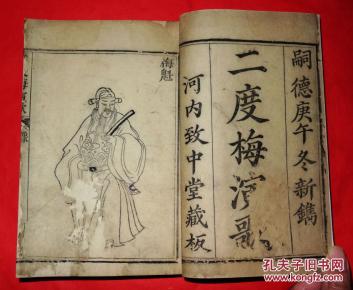 嗣德庚午冬新鐫
二度梅演歌
河内致中堂藏板
梅魁
孔夫子旧书网